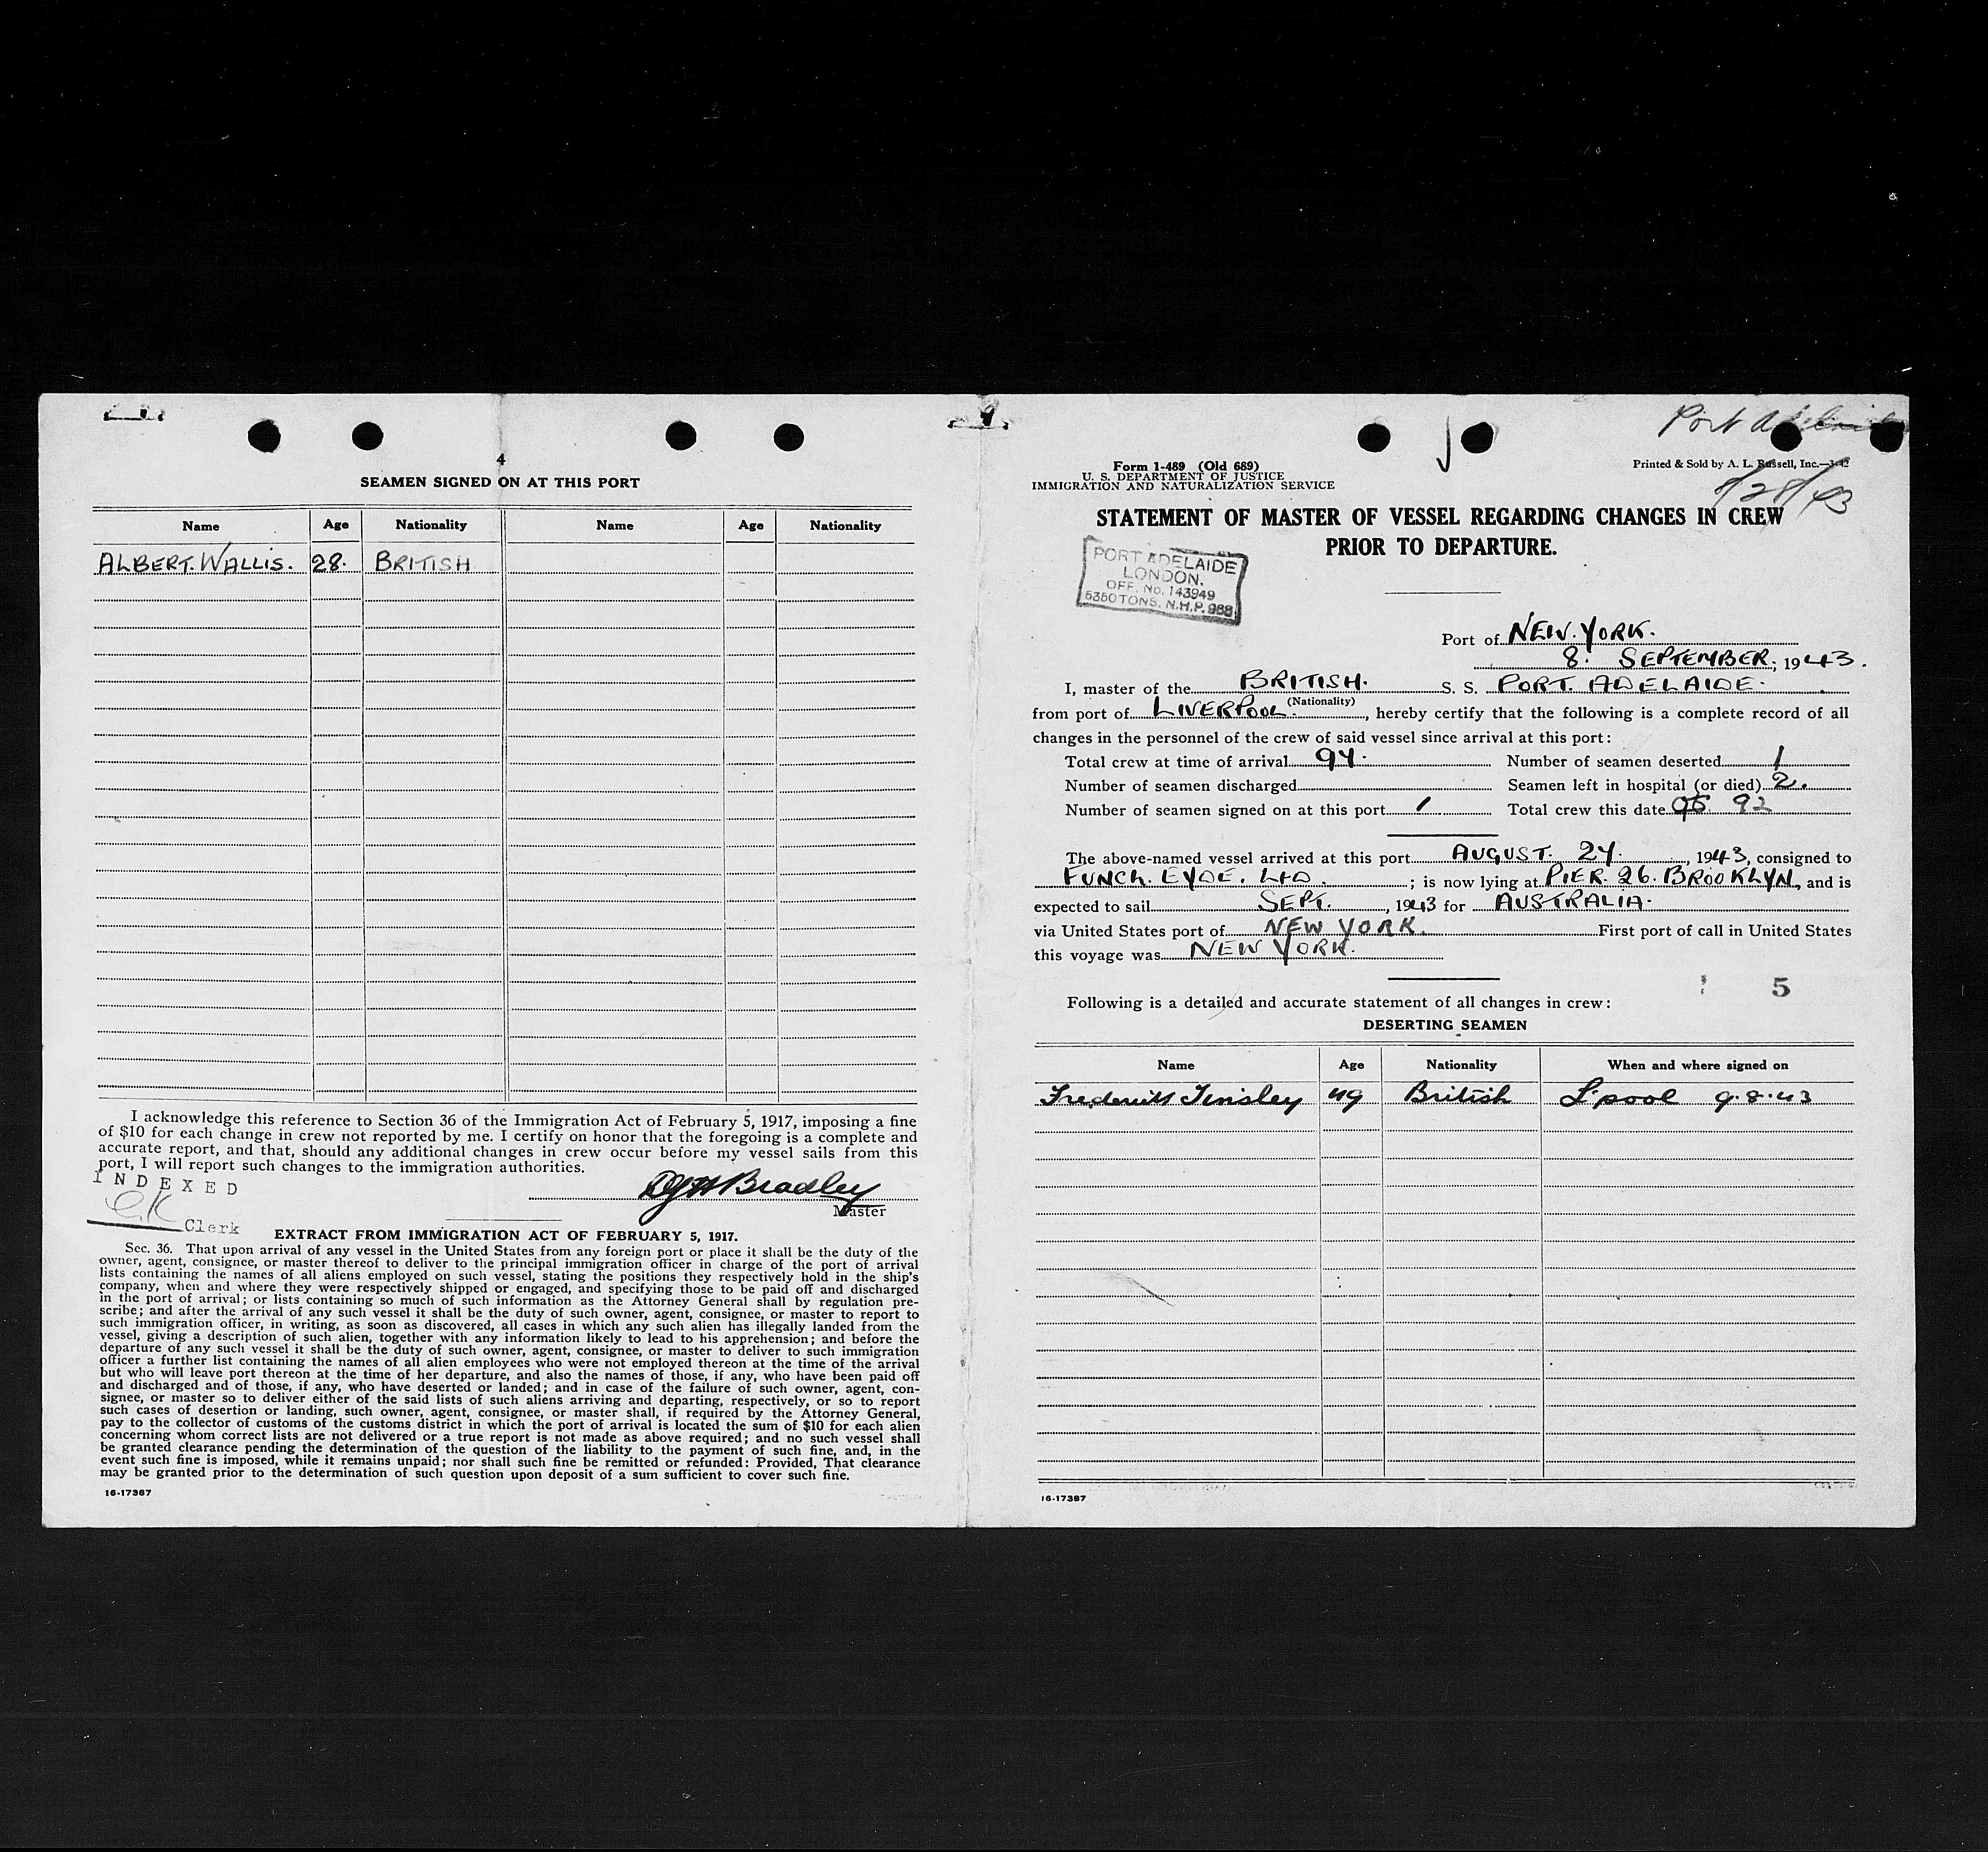 4
SEAMEN SIGNED ON AT THIS PORT
Name Age Nationality Name Age Nationality
ALBERT. WALLIS. 28. BRITISH
I acknowledge this reference to Section 36 of the Immigration Act of February 5, 1917, imposing a fine
of $10 for each change in crew not reported by me. I certify on honor that the foregoing is a complete and
accurate report, and that, should any additional changes in crew occur before my vessel sails from this
port, I will report such changes to the immigration authorities.
INDEXED
Bradley
Master
Clerk
EXTRACT FROM IMMIGRATION ACT OF FEBRUARY 5, 1917.
Sec. 36. That upon arrival of any vessel in the United States from any foreign port or place it shall be the duty of the
owner, agent, consignee, or master thereof to deliver to the principal immigration officer in charge of the port of arrival
lists containing the names of all aliens employed on such vessel, stating the positions they respectively hold in the ship's
company, when and where they were respectively shipped or engaged, and specifying those to be paid off and discharged
in the port of arrival; or lists containing so much of such information as the Attorney General shall by regulation pre-
scribe; and after the arrival of any such vessel it shall be the duty of such owner, agent, consignee, or master to report to
such immigration officer, in writing, as soon as discovered, all cases in which any such alien has illegally landed from the
vessel, giving a description of such alien, together with any information likely to lead to his apprehension; and before the
departure of any such vessel it shall be the duty of such owner, agent, consignee, or master to deliver to such immigration
officer a further list containing the names of all alien employees who were not employed thereon at the time of the arrival
but who will leave port thereon at the time of her departure, and also the names of those, if any, who have been paid off
and discharged and of those, if any, who have deserted or landed; and in case of the failure of such owner, agent, con-
signee, or master so to deliver either of the said lists of such aliens arriving and departing, respectively, or so to report
such cases of desertion or landing, such owner, agent, consignee, or master shall, if required by the Attorney General,
pay to the collector of customs of the customs district in which the port of arrival is located the sum of $10 for each alien
concerning whom correct lists are not delivered or a true report is not made as above required; and no such vessel shall
be granted clearance pending the determination of the question of the liability to the payment of such fine, and, in the
event such fine is imposed, while it remains unpaid; nor shall such fine be remitted or refunded: Provided, That clearance
may be granted prior to the determination of such question upon deposit of a sum sufficient to cover such fine.
16-17387
Port Adelaide
Form 1-489 (Old 689)
U. S. DEPARTMENT OF JUSTICE
IMMIGRATION AND NATURALIZATION SERVICE
Printed & Sold by A. L. Russell, Inc.—3-42
STATEMENT OF MASTER OF VESSEL REGARDING CHANGES IN CREW
PRIOR TO DEPARTURE.
PORT ADELAIDE
LONDON.
OFF. No. 143949
5350 TONS. N.H.P. 988
Port of NEW. YORK.
8. SEPTEMBER, 1943.
I, master of the BRITISH. S. S. PORT. ADELAIDE.
(Nationality)
from port of LIVERPOOL., hereby certify that the following is a complete record of all
changes in the personnel of the crew of said vessel since arrival at this port:
Total crew at time of arrival 94. Number of seamen deserted 1
Number of seamen discharged Seamen left in hospital (or died) 2.
Number of seamen signed on at this port 1 Total crew this date 92
The above-named vessel arrived at this port AUGUST. 24., 1943, consigned to
FUNCH. EYDE. LTD.; is now lying at PIER. 26. BROOKLYN, and is
expected to sail SEPT., 1943 for AUSTRALIA.
via United States port of NEW YORK. First port of call in United States
this voyage was NEW YORK.
5
Following is a detailed and accurate statement of all changes in crew:
DESERTING SEAMEN
Name Age Nationality When and where signed on
Frederick Tinsley 49 British L'pool 9.8.43
16-17387